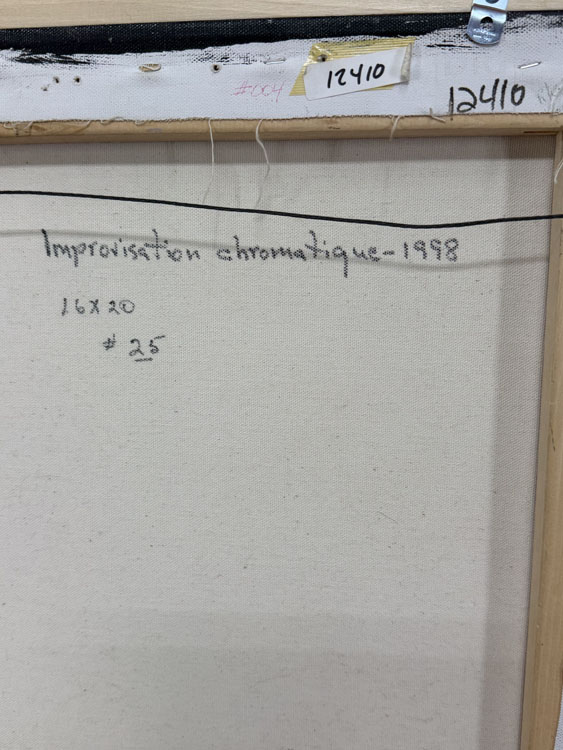 #004
12410
12410
Improvisation chromatique-1998
16x20
# 25